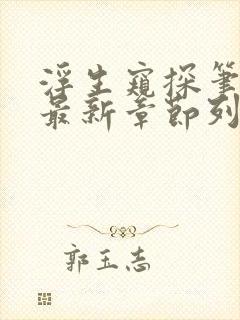 浮生窥探笔
最新章节列
郭玉志